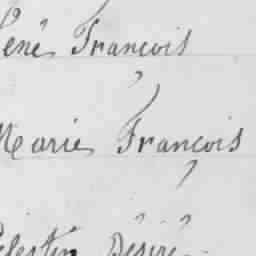 René François
Marie François
Célestin Désiré